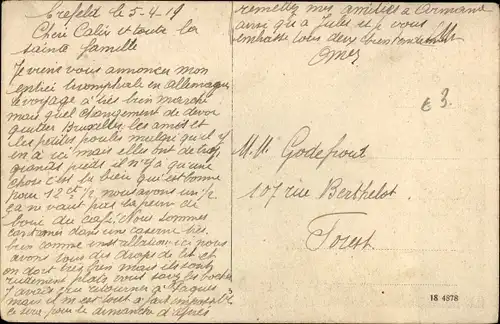 Crefeld le 5-4-19
Cheri Calin et toute la
sainte famille
Je viens vous annoncer mon
entrée triomphale en Allemagne
le voyage a très bien marché
mais quel changement de devoir
quitter Bruxelles les amis et
les petites poules malgré qu'il y
en a ici mais elles ont de trop
grands pieds il n'y a qu'une
chose c'est la bière qui est bonne
pour 12 ct nous avons un
ça ne vaut pas la peine de
boire du café. Nous sommes
dans une caserne très
bien comme installation ici nous
avons tous des draps de lit et
on dort très bien mais ils sont
rudement plats vous savez les boches
Je devais retourner à Pâques
mais il m'est tout à fait impossible
ce sera pour le dimanche d'après
remettez mes amitiés à Armand
ainsi qu'à Jules et je vous
embrasse tous deux bien tendrement
Omer
€ 3.
M.M. Godefroot
107 rue Berthelot
Forest
18 4878